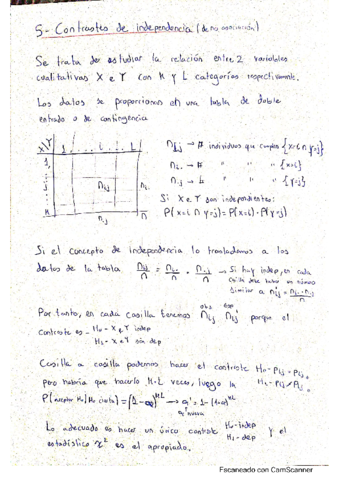 5- Contrastes de independencia (de no asociación)
Se trata de estudiar la relación entre 2 variables
cualitativas X e Y con K y L categorías respectivamente.
Los datos se proporcionan en una tabla de doble
entrada o de contingencia
X\Y 1 ... L
1
K
nij ni.
n.j n
nij → # individuos que cumplen {x=i ∩ y=j}
ni. → # " " " {x=i}
n.j → # " " " {y=j}
Si X e Y son independientes:
P(x=i ∩ y=j) = P(x=i) · P(y=j)
Si el concepto de independencia lo trasladamos a los
datos de la tabla nij/n = ni./n · n.j/n → Si hay indep, en cada
casilla debe haber un número
similar a nij = ni. · n.j/n
Por tanto, en cada casilla tenemos nij nij porque el
contraste es - H0 - X e Y indep
H1 - X e Y sin dep
Casilla a casilla podemos hacer el contraste H0 - Pij = Pi.
Pero habría que hacerlo K·L veces, luego la
P(aceptar H0 / H0 cierta) = (1-α)KL → α' = 1-(1-α)KL
Lo adecuado es hacer un único contraste H0 - indep y el
H1 - dep
estadístico χ2 es el apropiado.
Escaneado con CamScanner